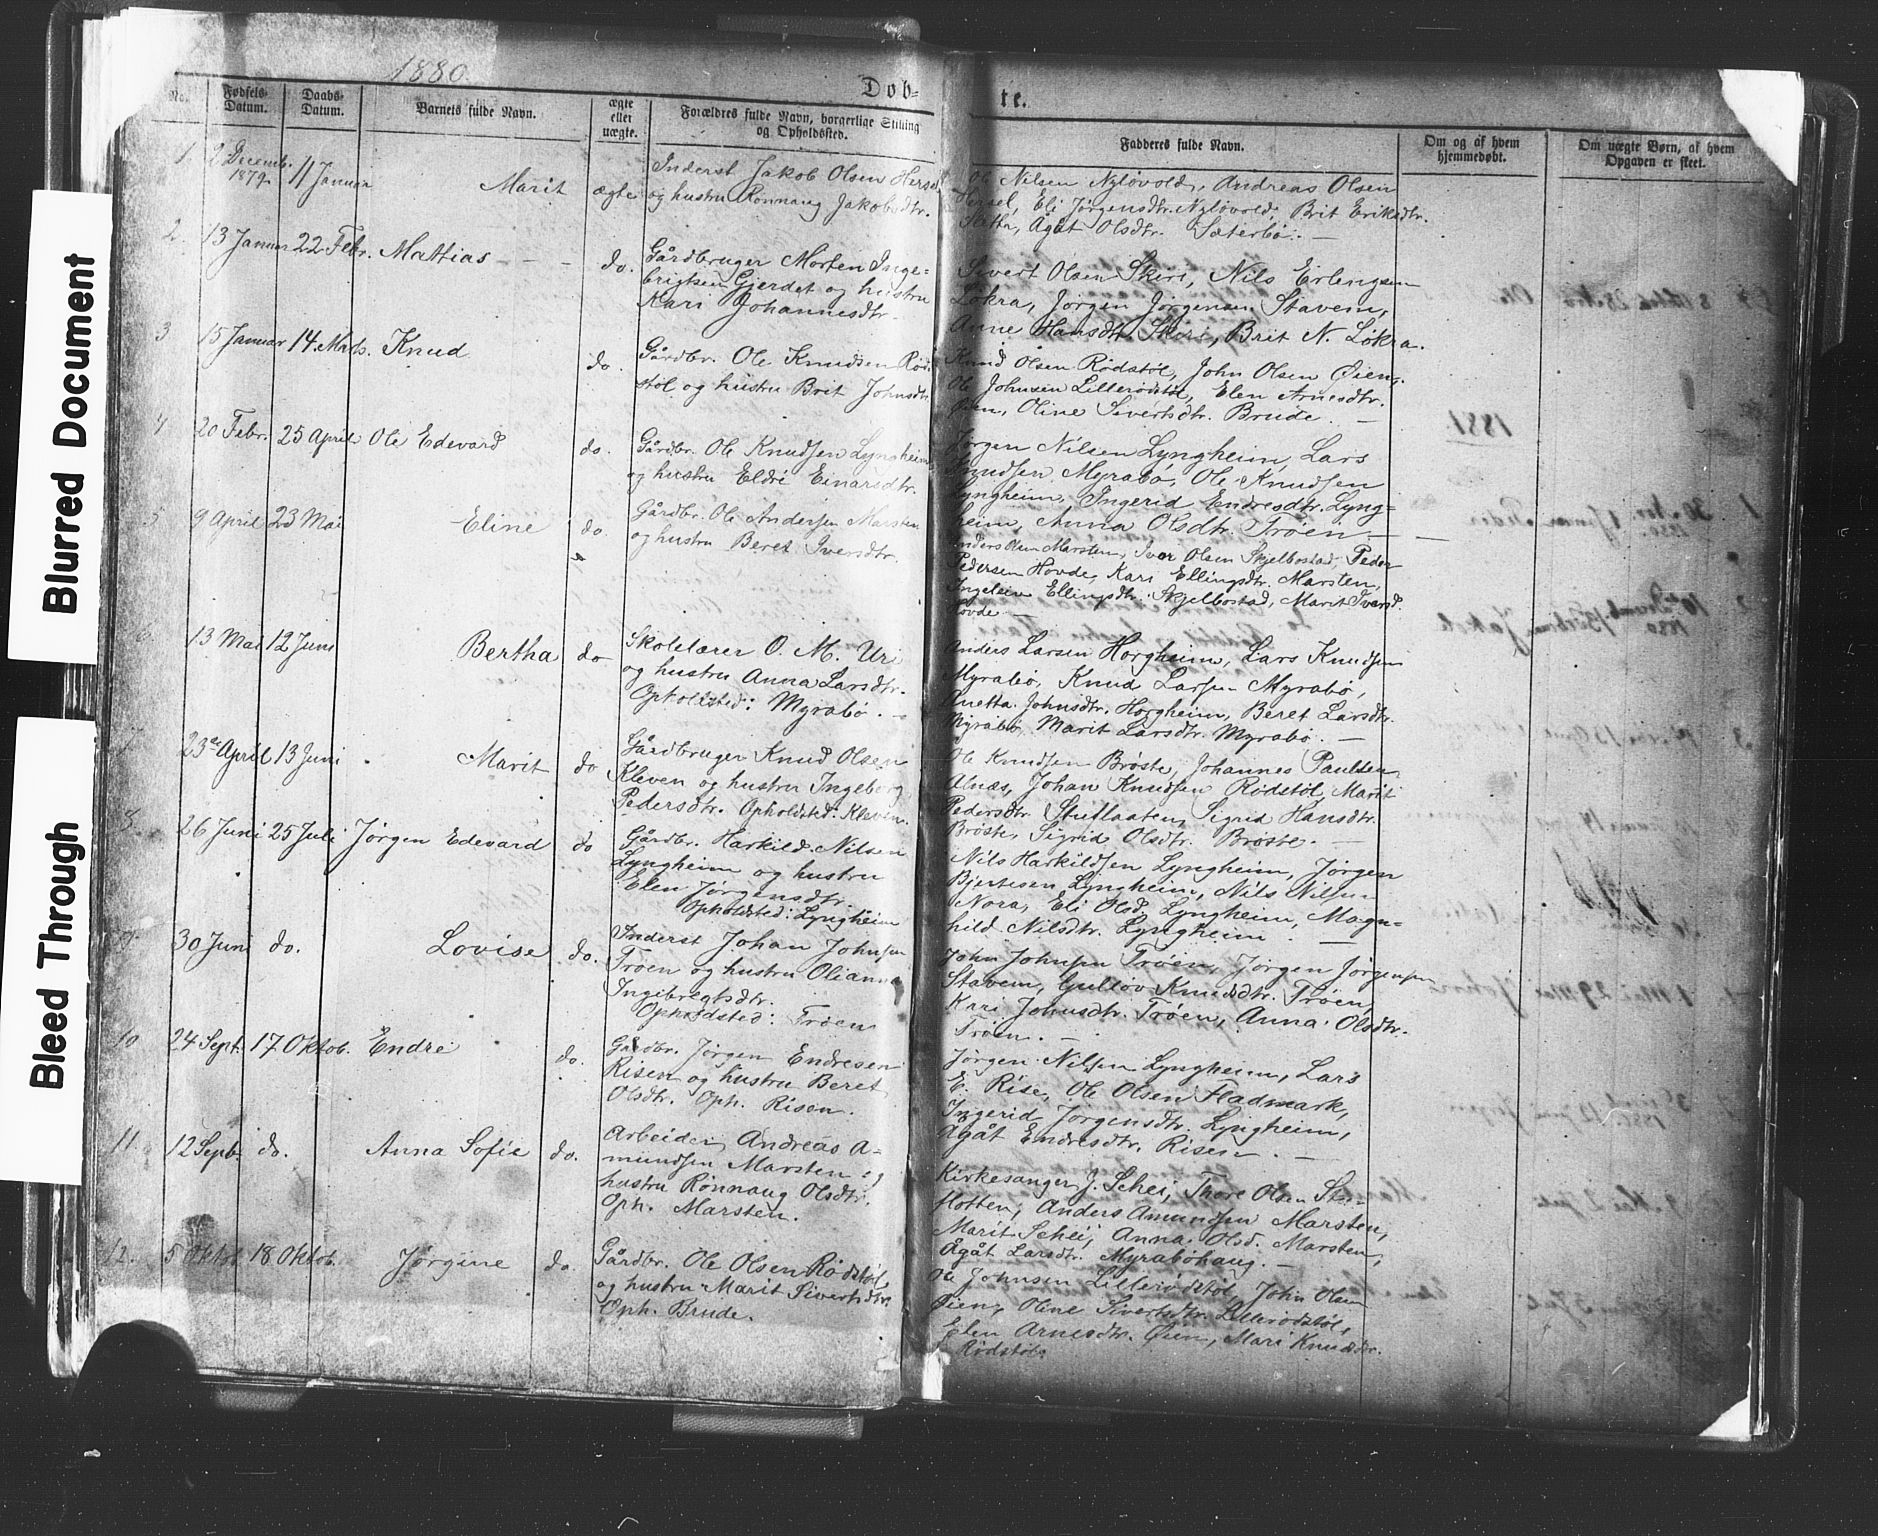 Blurred Document
Bleed Through
1880.
Døb-
te.
No.
Fødsels-
Datum.
Daabs-
Datum.
Barnets fulde Navn.
ægte
eller
uægte.
Forældres fulde Navn, borgerlige Stilling
og Opholdssted.
Faddernes fulde Navn.
Om og af hvem
hjemmedøbt.
Om uægte Børn, af hvem
Opgaven er skeet.
1. 2 Decemb. 1879. 11 Januar Marit ægte
Inderst Jakob Olsen Hersel
og hustru Rønnaug Jakobsdtr.
Ole Nilsen Nyløvold, Andreas Olsen
Hersel, Eli Jørgensdtr. Nyløvold, Brit Eriksdtr.
Sletta, Ågåt Olsdtr. Sæterbø. —
2. 13 Januar 22 Febr. Mattias - - - do.
Gårdbruger Morten Inge-
brigtsen Gjerdet og hustru
Kari Johannesdtr.
Sivert Olsen Skiri, Nils Erlengsen
Løkra, Jørgen Jørgensen Stavem,
Anne Hansdtr. Skiri, Brit N. Løkra.
3 15 Januar 14 Marts. Knud do.
Gårdbr. Ole Knudsen Rød-
støl og hustru Brit Johnsdtr
Knud Olsen Rødstøl, John Olsen Øien,
Ole Johnsen Lillerødstøl, Elen Arnesdtr.
Øien, Oline Sivertsdtr. Brude. —
4 20 Febr. 25 April Ole Edevard do.
Gårdbr. Ole Knudsen Lyngheim
og hustru Eldri Einarsdtr.
Jørgen Nilsen Lyngheim, Lars
Knudsen Myrabø, Ole Knudsen
Lyngheim, Ingerid Endresdtr. Lyng-
heim, Anna Olsdtr. Trøen —
5 9 April 23 Mai Eline do.
Gårdbr. Ole Andersen Marsten
og hustru Beret Iversdtr.
Anders Olsen Marsten, Iver Olsen Skjelbostad, Peder
Pedersen Hovde, Kari Ellingsdtr. Marsten,
Ingeleiv Ellingsdtr. Skjelbostad, Marit Iversd.
Hovde —
6. 13 Mai 12 Juni Bertha do
Skolelærer O. M. Uri
og hustru Anna Larsdtr.
Opholdsted: Myrabø.
Anders Larsen Horgheim, Lars Knudsen
Myrabø, Knud Larsen Myrabø,
Anetta Johnsdtr. Horgheim, Beret Larsdtr.
Myrabø, Marit Larsdtr. Myrabø. —
7. 23de April 13 Juni Marit do
Gårdbruger Knud Olsen
Kleven og hustru Ingeborg
Pedersdtr. Opholdsted: Kleven.
Ole Knudsen Brøste, Johannes Paulsen
Alnæs, Johan Knudsen Rødstøl, Marit
Pedersdtr. Stuflaaten, Sigrid Hansdtr.
Brøste, Sigrid Olsdtr. Brøste. —
8. 26 Juni 25 Juli Jørgen Edevard do
Gårdbr. Harkild Nilsen
Lyngheim og hustru
Elen Jørgensdtr.
Opholdsted: Lyngheim
Nils Harkildsen Lyngheim, Jørgen
Bjertesen Lyngheim, Nils Nilsen
Nora, Eli Olsd. Lyngheim, Magn-
hild Nilsdtr. Lyngheim. —
9. 30 Juni do. Lovise do.
Inderst Johan Johnsen
Trøen og hustru Olianna
Ingibregtsdtr.
Opholdsted: Trøen
John Johnsen Trøen, Jørgen Jørgensen
Stavem, Gullov Knudsdtr. Trøen,
Kari Johnsdtr. Trøen, Anna Olsdtr.
Trøen. —
10 24 Sept. 17 Oktob. Endre do.
Gårdbr. Jørgen Endresen
Risen og hustru Beret
Olsdtr. Oph. Risen.
Jørgen Nilsen Lyngheim, Lars
E. Rise, Ole Olsen Fladmark,
Ingerid Jørgensdtr. Lyngheim,
Ågåt Endresdtr. Risen. —
11. 12 Sept. do. Anna Sofie do.
Arbeider Andreas A-
mundsen Marsten og
hustru Rønnaug Olsdtr.
Oph. Marsten.
Kirkesanger J. Schei, Thore Olsen
Flotten, Anders Amundsen Marsten,
Marit Schei, Anna Olsd. Marsten,
Ågåt Larsdtr. Myrabøhaug. —
12. 5 Oktob. 18 Oktob. Jørgine do.
Gårdbr. Ole Olsen Rødstøl,
og hustru Marit Sivertsdtr.
Oph. Brude.
Ole Johnsen Lillerødstøl, John Olsen
Øien, Oline Sivertsdtr. Lillerødstøl,
Elen Arnesdtr. Øien, Mari Knudsdtr.
Rødstøl.